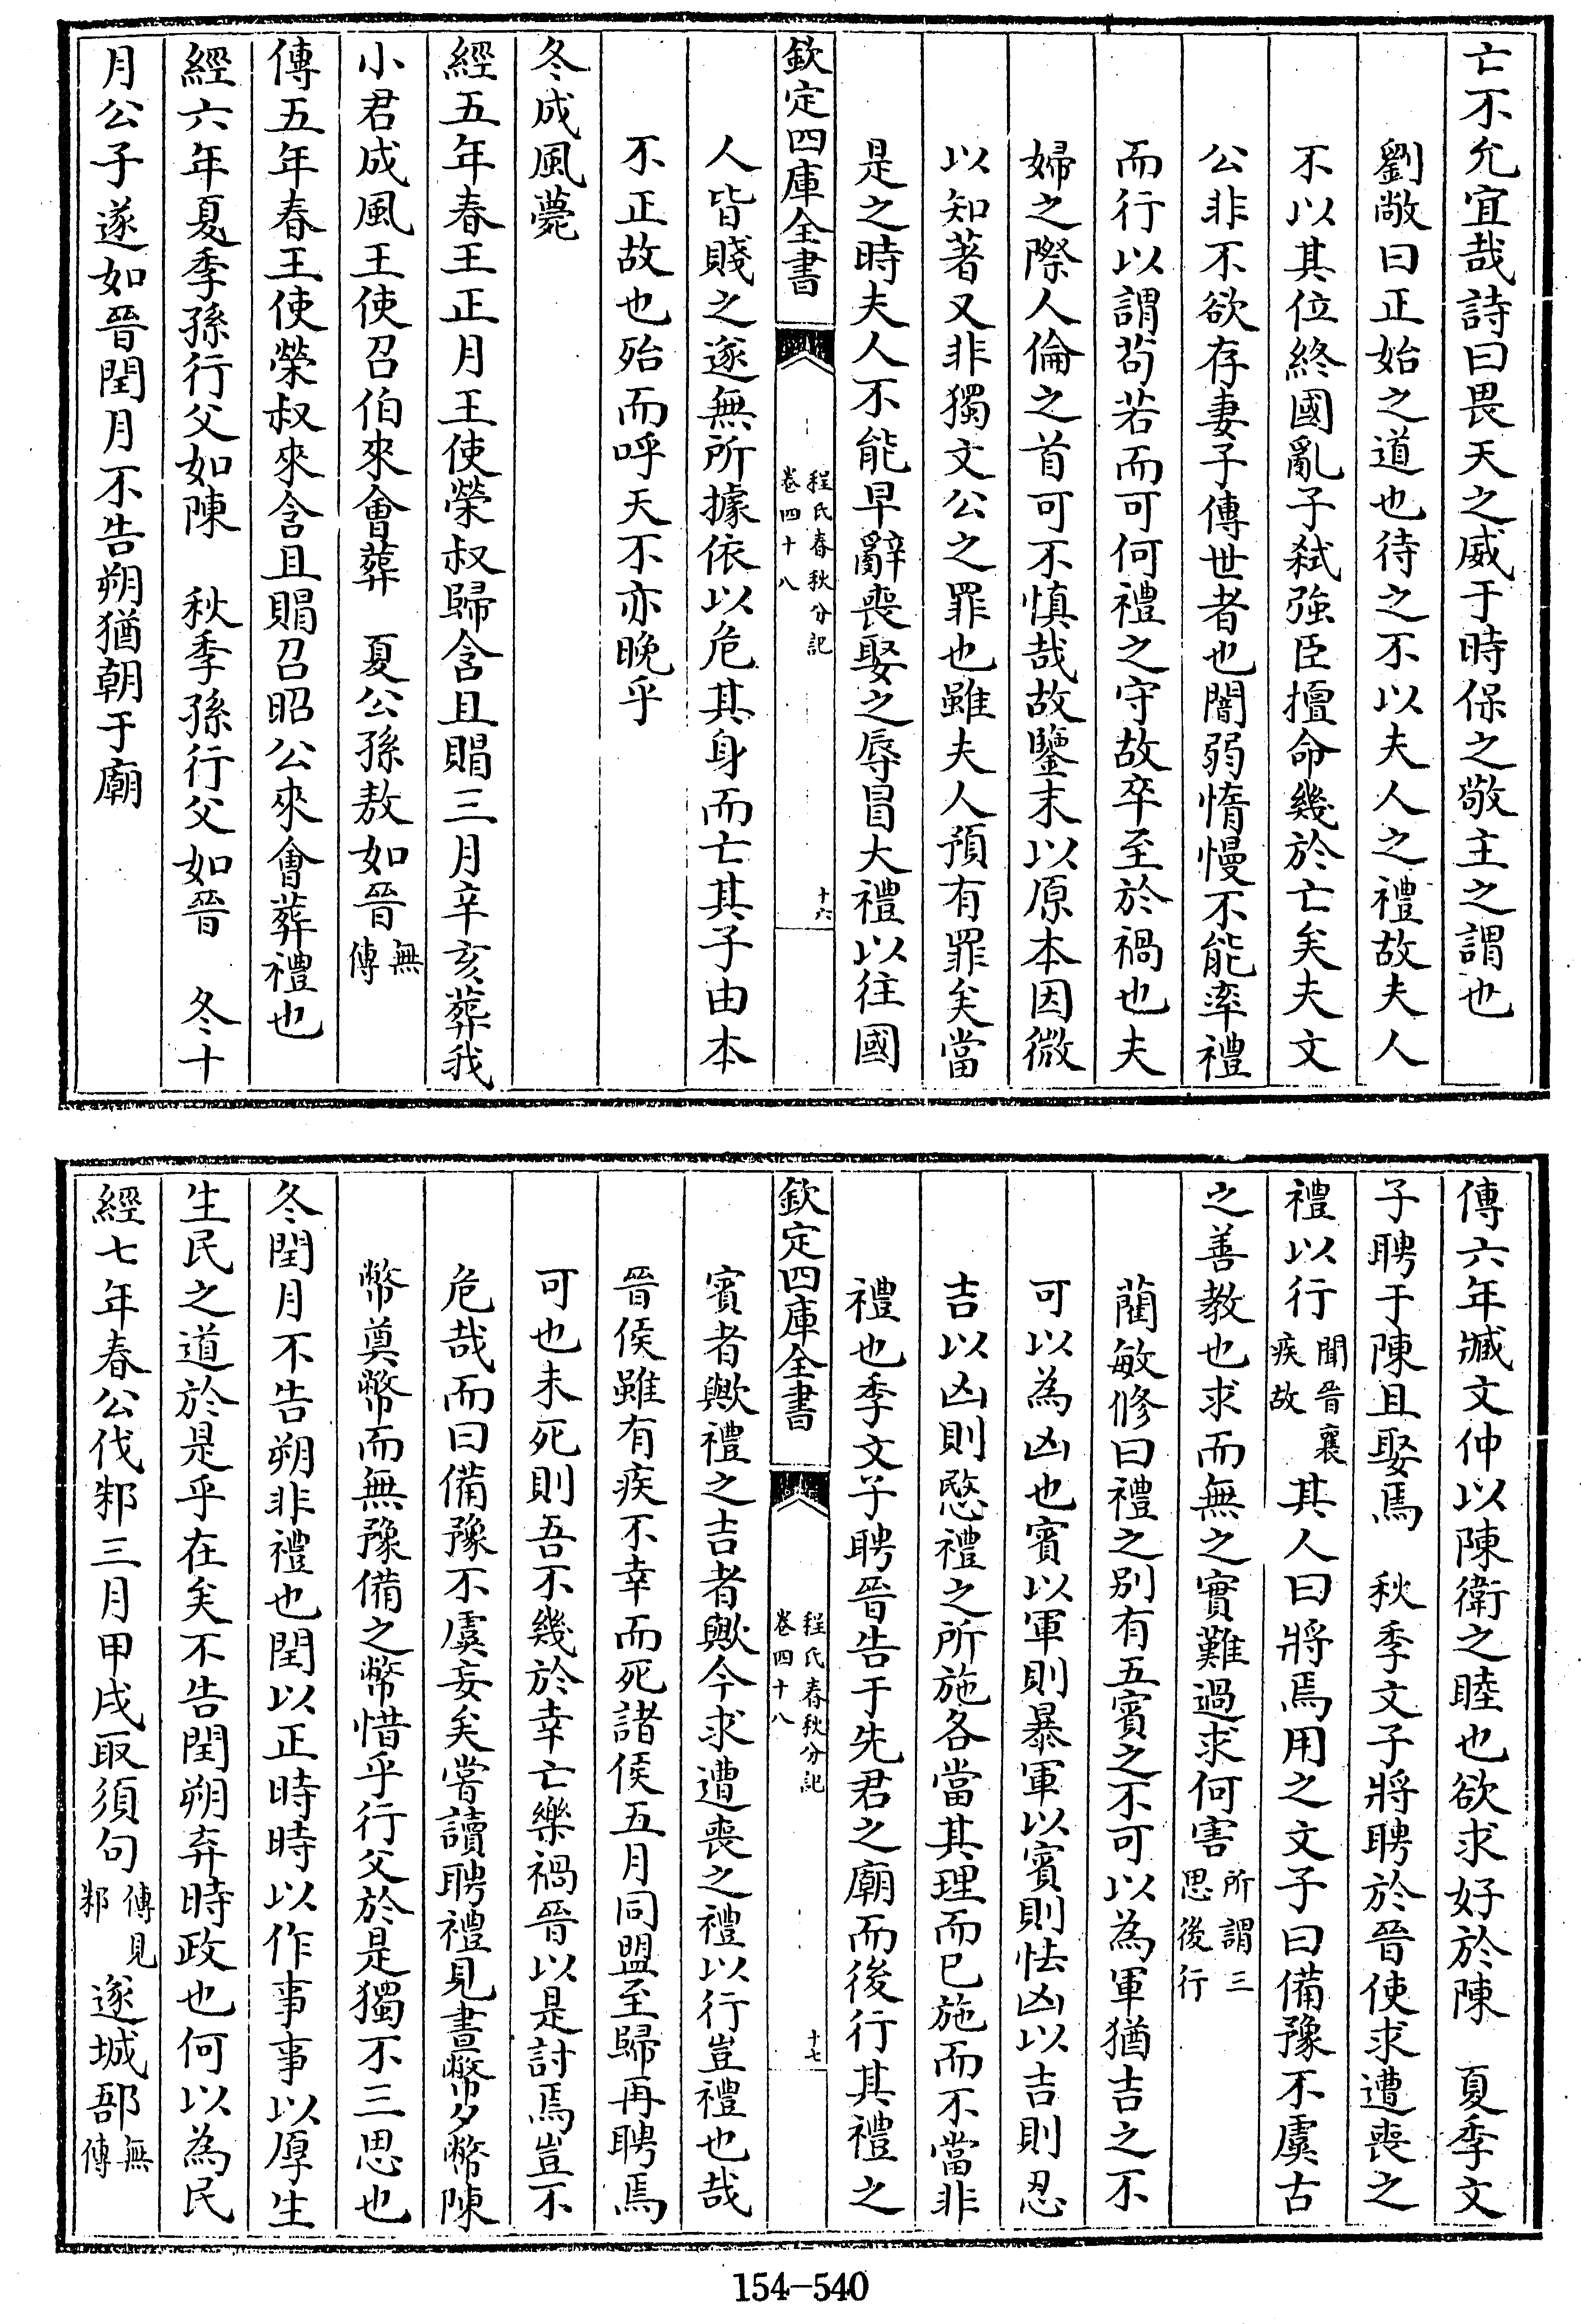 亡不允宜哉詩曰畏天之威于時保之敬主之謂也
劉敞曰正始之道也待之不以夫人之禮故夫人
不以其位終國亂子弑強臣擅命幾於亡矣夫文
公非不欲存妻子傳世者也闇弱惰慢不能率禮
而行以謂苟若而可何禮之守故卒至於禍也夫
婦之際人倫之首可不慎哉故鑒末以原本因微
以知著又非獨文公之罪也雖夫人預有罪矣當
是之時夫人不能早辭喪娶之辱冒大禮以往國
欽定四庫全書
程氏春秋分記
卷四十八
十六
人皆賤之遂無所據依以危其身而亡其子由本
不正故也殆而呼天不亦晚乎
冬成風薨
經五年春王正月王使榮叔歸含且賵三月辛亥葬我
小君成風王使召伯來會葬　夏公孫敖如晉無傳
傳五年春王使榮叔來含且賵召昭公來會葬禮也
經六年夏季孫行父如陳　秋季孫行父如晉　冬十
月公子遂如晉閏月不告朔猶朝于廟
傳六年臧文仲以陳衛之睦也欲求好於陳　夏季文
子聘于陳且娶焉　秋季文子將聘於晉使求遭喪之
禮以行聞晉襄疾故其人曰將焉用之文子曰備豫不虞古
之善教也求而無之實難過求何害所謂三思後行
藺敏修曰禮之別有五賓之不可以為軍猶吉之不
可以為凶也賓以軍則暴軍以賓則怯凶以吉則忍
吉以凶則愍禮之所施各當其理而已施而不當非
禮也季文子聘晉告于先君之廟而後行其禮之
欽定四庫全書
程氏春秋分記
卷四十八
十七
賓者歟禮之吉者歟今求遭喪之禮以行豈禮也哉
晉侯雖有疾不幸而死諸侯五月同盟至歸再聘焉
可也未死則吾不幾於幸亡樂禍晉以是討焉豈不
危哉而曰備豫不虞妄矣嘗讀聘禮見書幣夕幣陳
幣奠幣而無豫備之幣惜乎行父於是獨不三思也
冬閏月不告朔非禮也閏以正時時以作事事以厚生
生民之道於是乎在矣不告閏朔弃時政也何以為民
經七年春公伐邾三月甲戌取須句傳見邾遂城郚無傳
154-540